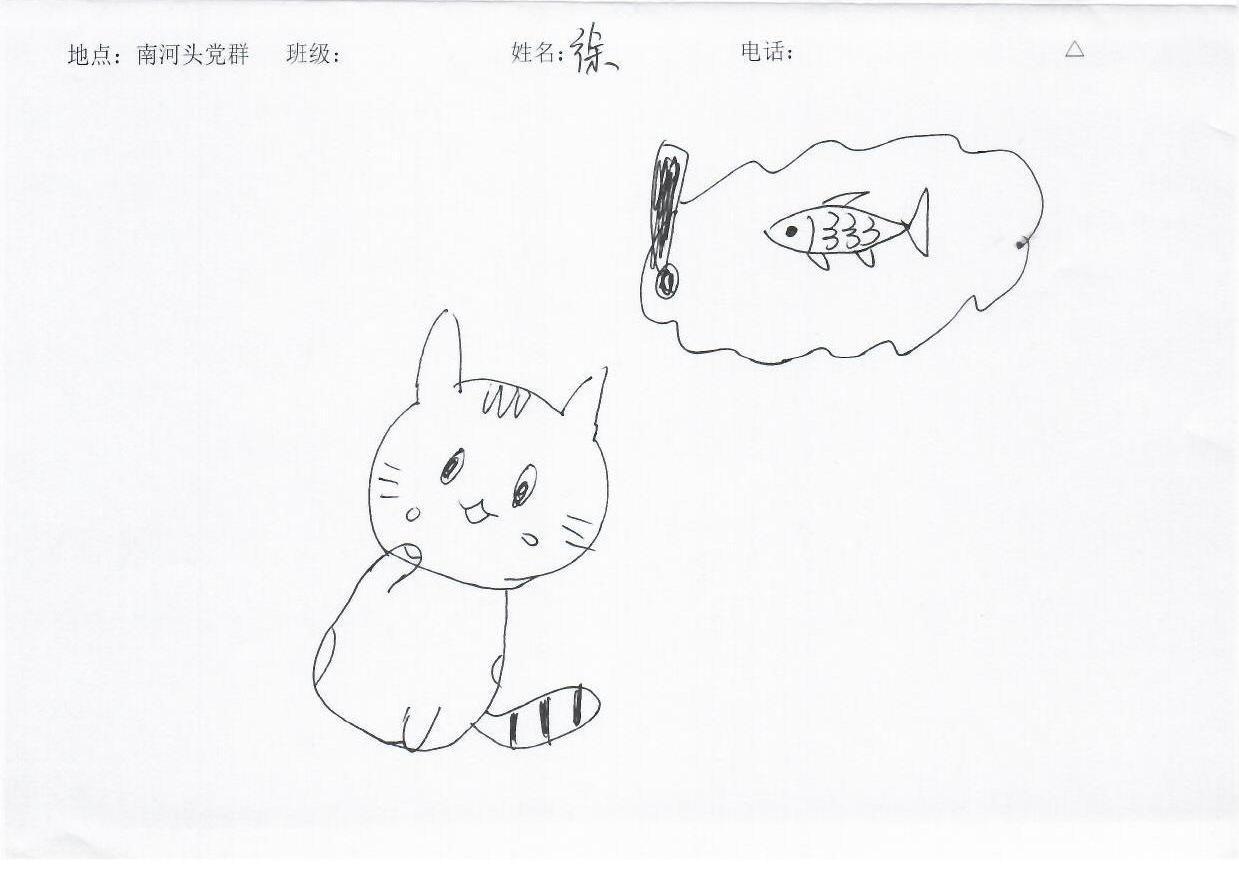 地点：南河头党群 班级： 姓名：徐 电话： △